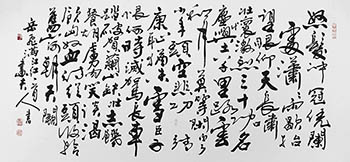 怒髮衝冠憑闌
處瀟瀟雨歇抬
望眼仰天長嘯
壯懷激烈三十功名
塵與土八千里路雲
和月莫等閑白了
少年頭空悲切靖
康恥猶未雪臣子
恨何時滅駕長車
踏破賀蘭山缺壯志飢
餐胡虜肉笑談渴
飲匈奴血待從頭收拾
舊山河朝天闕
岳飛滿江紅
書